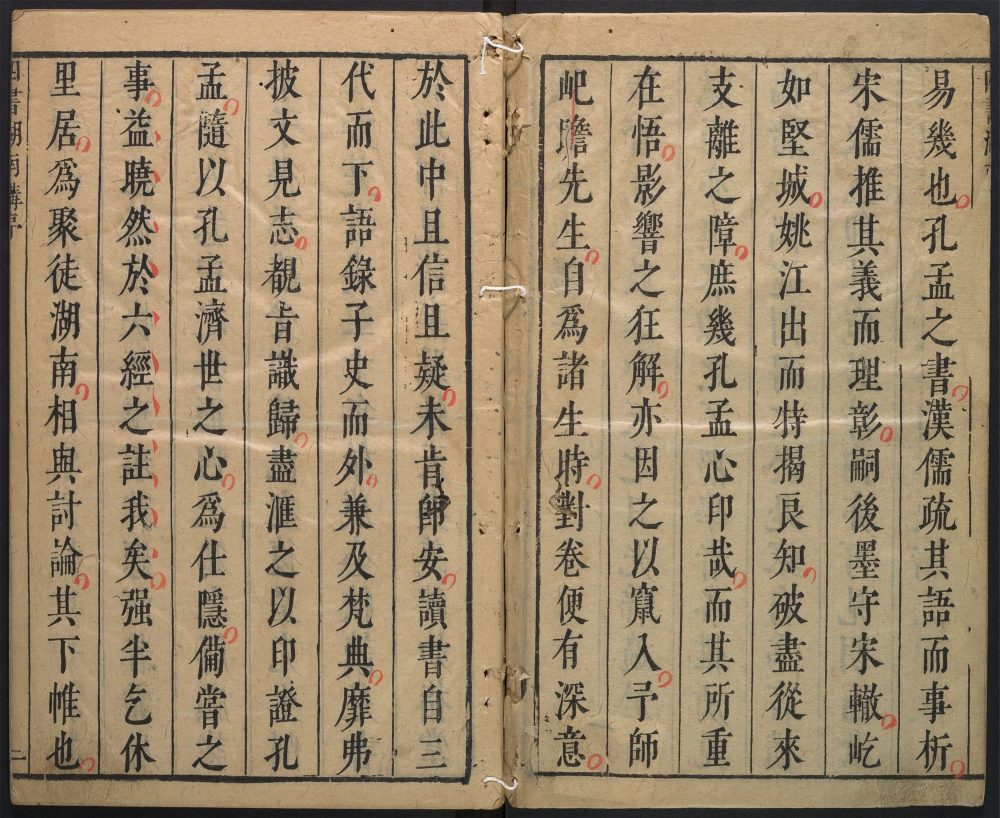 易幾也孔孟之書漢儒疏其語而事析
宋儒推其義而理彰嗣後墨守宋轍屹
如堅城姚江出而特揭良知破盡從來
支離之障庶幾孔孟心印哉而其所重
在悟影響之狂解亦因之以竄入予師
屺瞻先生自爲諸生時對卷便有深意
於此中且信且疑未肯卽安讀書自三
代而下語錄子史而外兼及梵典靡弗
披文見志覩㫖識歸盡滙之以印證孔
孟隨以孔孟濟世之心爲仕隱備甞之
事益曉然於六經之註我矣强半乞休
里居爲聚徒湖南相與討論其下帷也
四書湖南講序
二